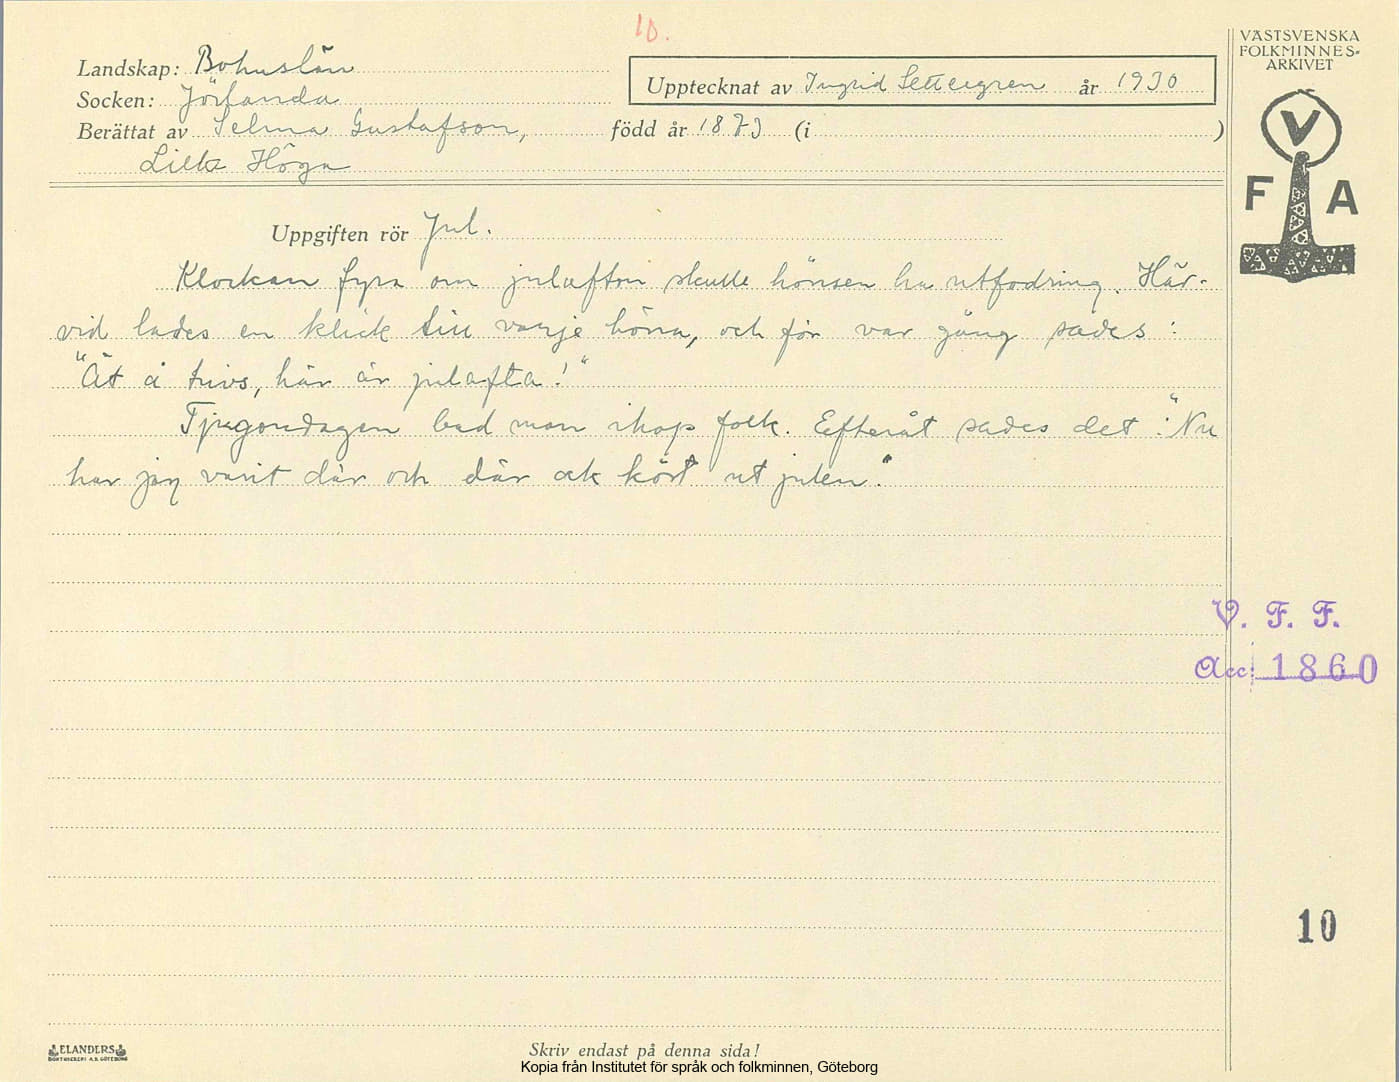 10.
VÄSTSVENSKA
FOLKMINNES-
ARKIVET
Landskap: Bohuslän
Upptecknat av Ingrid Settergren år 1930
Socken: Jörlanda
Berättat av Selma Gustafson, född år 1873 (i )
Lilla Höga
V
F A
Uppgiften rör Jul.
Klockan fyra om julafton skulle hönsen ha utfodring. Här-
vid lades en klick till varje höna, och för var gång sades:
"Ät å trivs, här är julafta!"
Tjugondagen bad man ihop folk. Efteråt sades det: "Nu
har jag varit där och där och kört ut julen."
V. F. F.
Acc: 1860
10
ELANDERS
BOKTRYCKERI A.B. GÖTEBORG
Skriv endast på denna sida!
Kopia från Institutet för språk och folkminnen, Göteborg